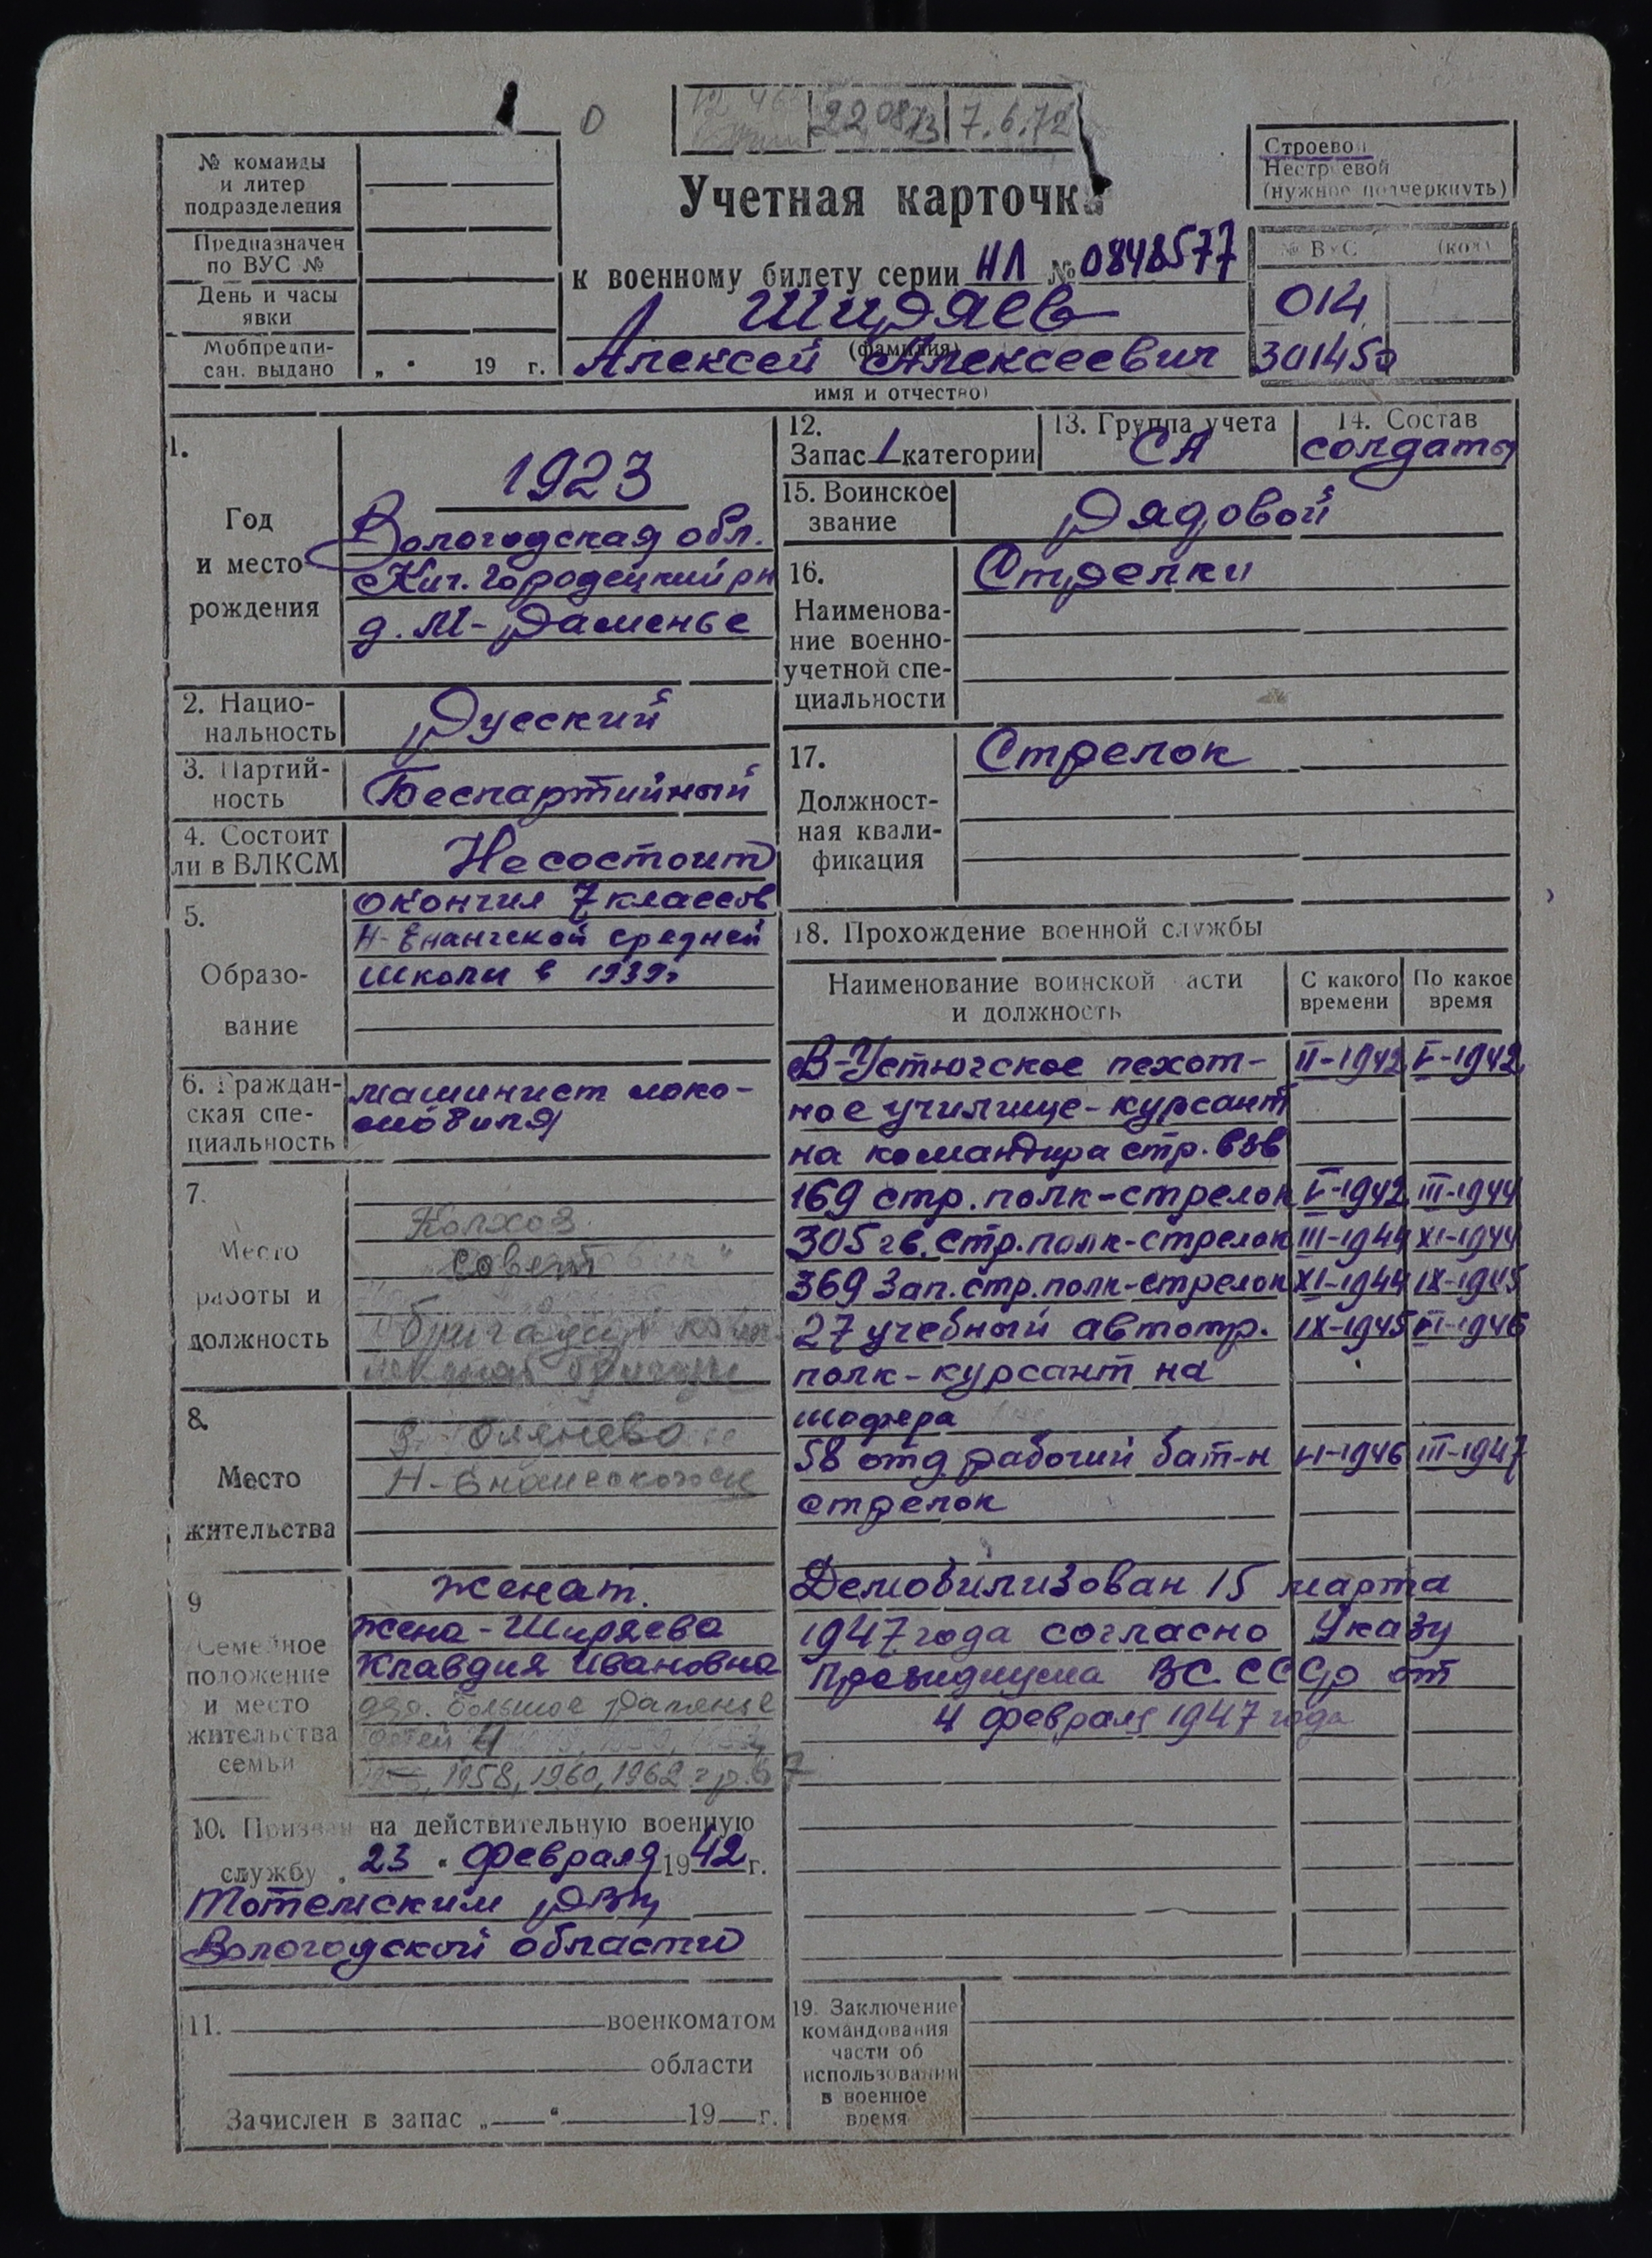 22 08 73 7.6.72
№ команды
и литер
подразделения
Строевой
Нестроевой
(нужное подчеркнуть)
Учетная карточка
Предназначен
по ВУС №
к военному билету серии НЛ № 0848577
№ ВУС (код)
День и часы
явки
Ширяев
(фамилия)
014
Мобпредпи-
сан. выдано „ " 19 г.
Алексей Алексеевич
имя и отчество)
301450
1.
Год
и место
рождения
1923
Вологодская обл.
Кич. Городецкий рн
д. М-Раменье
2. Нацио-
нальность
Русский
3. Партий-
ность
Беспартийный
4. Состоит
ли в ВЛКСМ
Не состоит
5.
Образо-
вание
окончил 7 классов
Н-Енангской средней
школы в 1939г
6. Граждан-
ская спе-
циальность
машинист локо-
мобиля
7.
Место
работы и
должность
Колхоз
8.
Место
жительства
Н-Енангского с/с
9
Семейное
положение
и место
жительства
семьи
женат.
жена - Ширяева
Клавдия Ивановна
дер. Большое Раменье
детей 4
1958, 1960, 1962 г.р.
10. Призван на действительную военную
службу „ 23 " февраля 1942 г.
Тотемским РВК
Вологодской области
11. военкоматом
области
Зачислен в запас „ " 19 г.
12.
Запас 1 категории
13. Группа учета
СА
14. Состав
солдаты
15. Воинское
звание
Рядовой
16.
Наименова-
ние военно-
учетной спе-
циальности
Стрелки
17.
Должност-
ная квали-
фикация
Стрелок
18. Прохождение военной службы
Наименование воинской части
и должность
С какого
времени
По какое
время
В-Устюгское пехот- II-1942 V-1942
ное училище-курсант
на командира стр. взв
169 стр. полк-стрелок V-1942 III-1944
305 гв. стр. полк-стрелок III-1944 XI-1944
369 Зап. стр. полк-стрелок XI-1944 IX-1945
27 учебный автотр. IX-1945 VI-1946
полк-курсант на
шофера
58 отд рабочий бат-н VI-1946 III-1947
стрелок
Демобилизован 15 марта
1947 года согласно Указу
Президиума ВС. СССР от
4 февраля 1947 года
19. Заключение
командования
части об
использовании
в военное
время